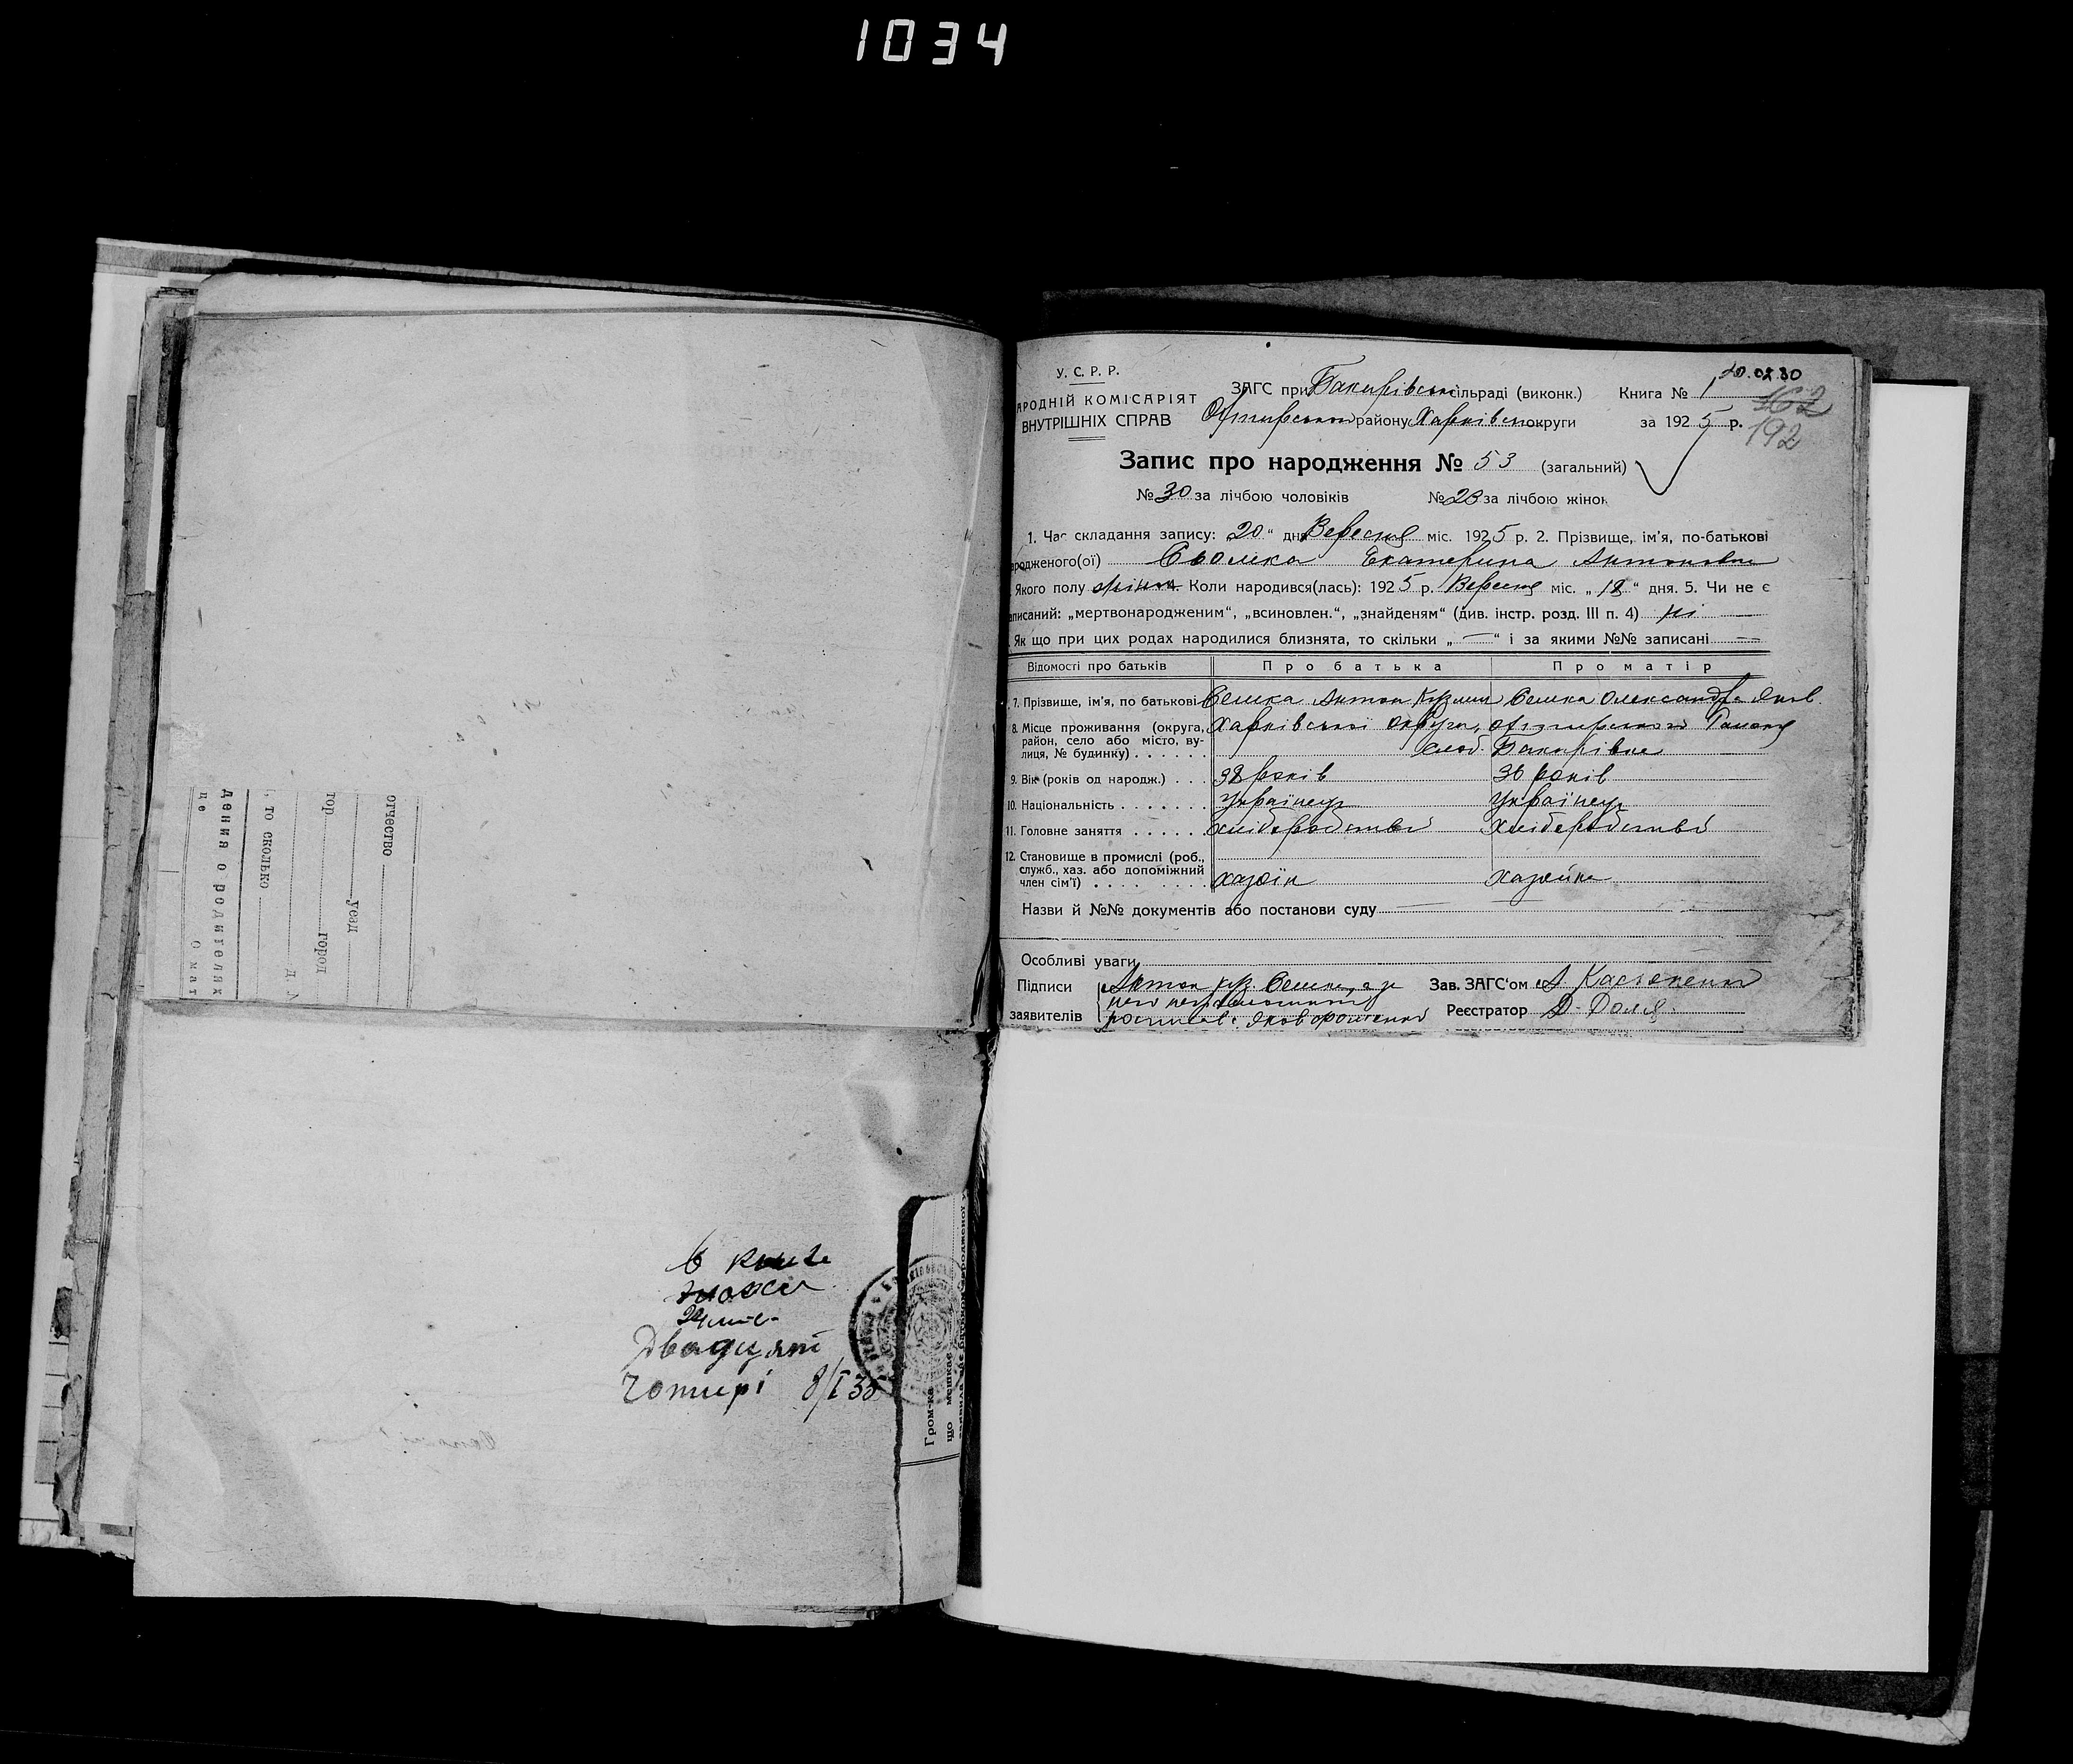 1034
отчество
Уезд
тор
город
, то сколько
д.
дения о родителях
це
О мат
Двадцят
Чотирі 8/I 35
Гром-ка
що мешкає
У. С. Р. Р.
АРОДНІЙ КОМІСАРІЯТ
ВНУТРІШНІХ СПРАВ
ЗАГС при Бакирівськ сільраді (виконк.) Книга № 1
району Харківської округи за 1925 р.
162
192
Запис про народження № 53 (загальний)
№ 30 за лічбою чоловіків № 23 за лічбою жінок
1. Час складання запису: 20 " дня Вересня міс. 1925 р. 2. Прізвище, ім'я, по-батькові
ародженого(ої) Сьомка Екатерина Антоновна
Якого полу жіноч. 4. Коли народився(лась): 1925 р. Вересня міс. „ 18 " дня. 5. Чи не є
аписаний: „мертвонародженим", „всиновлен.", „знайденям" (див. інстр. розд. III п. 4) ні
Як що при цих родах народилися близнята, то скільки „ — " і за якими №№ записані —
Відомості про батьків Про батька Про матір
7. Прізвище, ім'я, по батькові Семка Антон Кузмич Семка Олександра Яков.
8. Місце проживання (округа, Харківської округи, Охтирського Району
район, село або місто, ву-
лиця, № будинку) . . . . . . слоб. Бакирівка
9. Вік (років од народж.) . . . 38 років 36 років
10. Національність . . . . . . . Українец Українец
11. Головне заняття . . . . . . хліборобство Хліборобство
12. Становище в промислі (роб.,
служб., хаз. або допоміжний
член сім'ї) . . . . . . . . хазоїн хазяйка
Назви й №№ документів або постанови суду —
Особливі уваги
Підписи Антон Куз. Семка, а за Зав. ЗАГС'ом
него неграмотного
заявителів Реєстратор Д. Доля